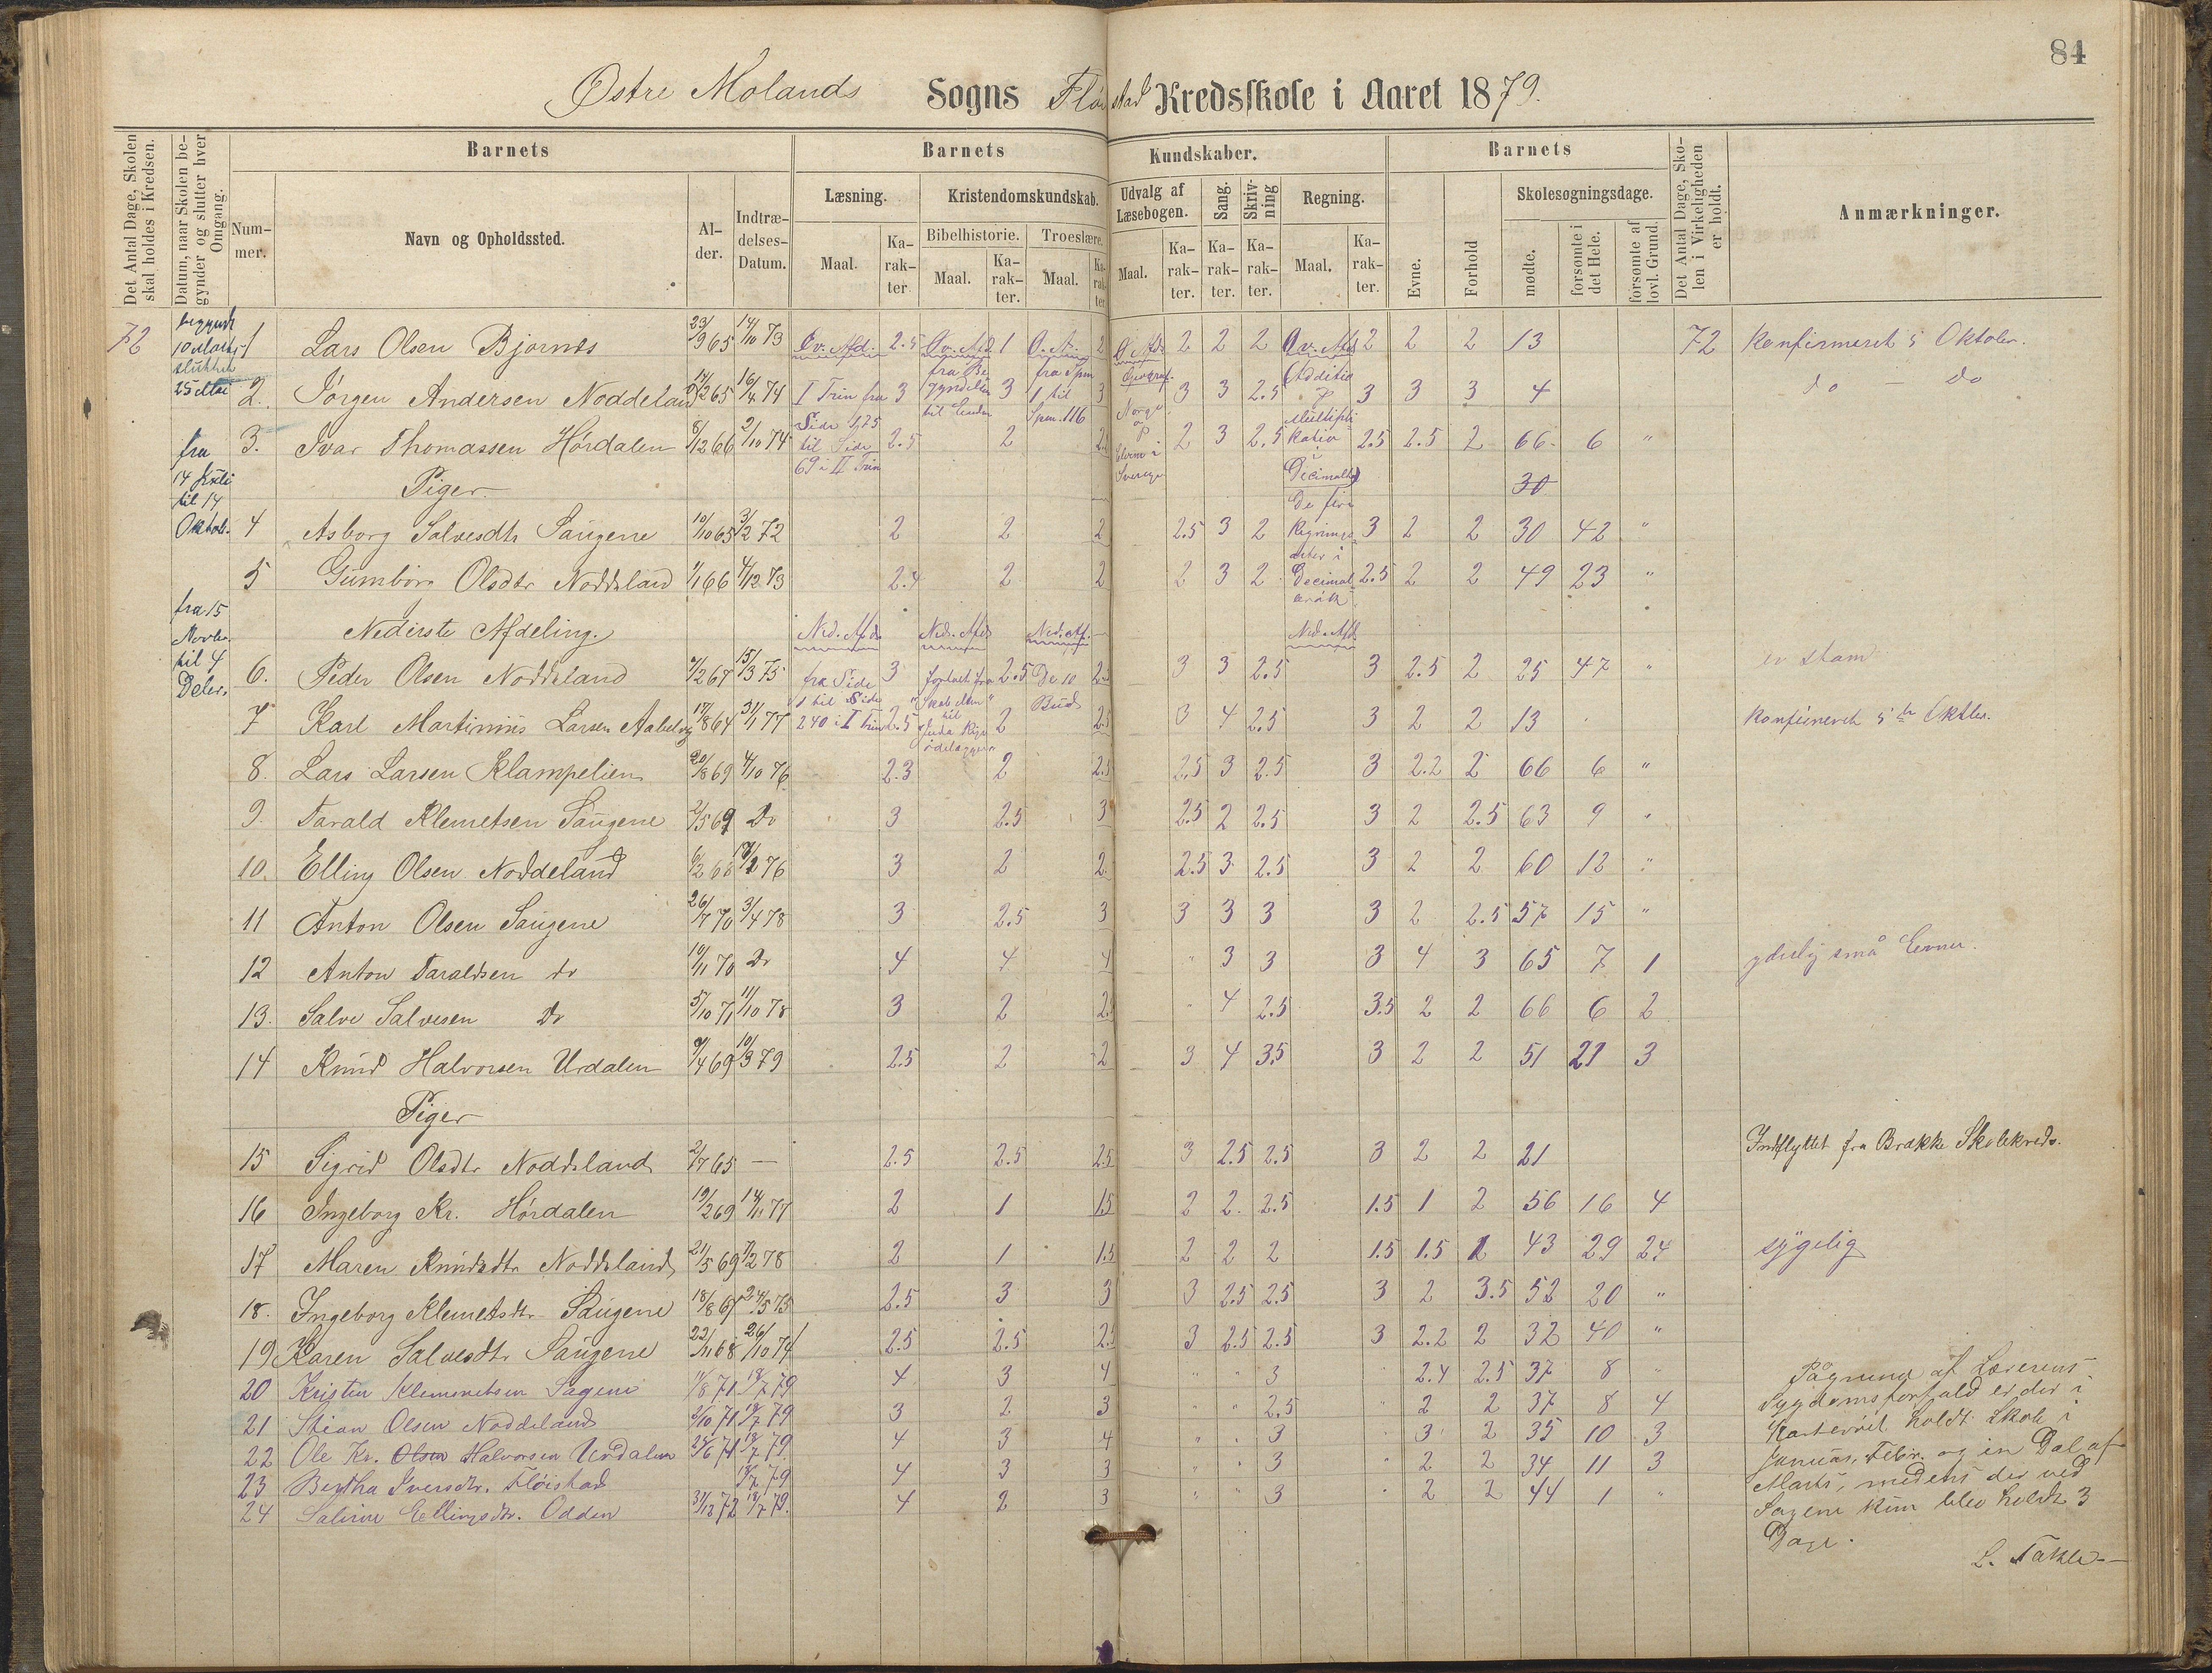 84
Østre Molands Sogns Fløistad Kredsskole i Aaret 1879.
Det Antal Dage, Skolen skal holdes i Kredsen.
Datum, naar Skolen begynder og slutter hver Omgang.
Barnets
Nummer.
Navn og Opholdssted.
Alder.
Indtrædelses-Datum.
Barnets Kundskaber.
Læsning. Maal. Karakter
Kristendomskundskab.
Bibelhistorie. Maal. Karakter.
Troeslære. Maal. Karakter
Udvalg af Læsebogen. Maal. Karakter.
Sang. Karakter.
Skrivning Karakter.
Regning. Maal. Karakter.
Barnets
Evne. Forhold
Skolesøgningsdage.
mødte. forsømte i det Hele. forsømte af lovl. Grund.
Det Antal Dage, Skolen i Virkeligheden er holdt.
Anmærkninger.
72 begyndt 10 Marts sluttet 25 Mai
fra 14 Juli til 14 Oktob.
fra 15 Novbr. til 4 Debr.
1 Lars Olsen Bjornes 23/9 65 14/10 73 Øv. Afd. 2.5 Øv. Afd. 1 2 Ø. Afd. 2 2 2 Øv. Afd. 2 2 2 13 72 Konfirmeret 5 Oktober.
2. Jørgen Andersen Noddeland 65 16/4 74 I Trin fra 3 fra Begyndelsen til Enden 3 fra Spm 1 til Spm. 116 3 Geograf. Norge 3 3 2.5 Addition 3 3 3 4 do — do
3. Ivar Thomassen Hördalen 8/12 66 2/10 74 Side 125 til Side 69 i II Trin 2.5 2 2.5 2 3 2.5 Multiplikation i Decimalbr 2.5 2.5 2 66 6 "
Piger 30
4 Asborg Salvesdtr Saugene 10/10 65 3/2 72 2 2 2 2.5 3 2 De fire Regningsarter i 3 2 2 30 42 "
5 Gumbor Olsdtr Noddeland 1/1 66 4/12 73 2.4 2 2 2 3 2 Decimalbrøk 2.5 2 2 49 23 "
Nederste Afdeling. Ned. Afd. Ned. Afd. Ned. Af. Ned. Afd.
6. Peder Olsen Noddeland 67 15/3 75 fra Side 3 2.5 De 10 Bud 3 3 2.5 3 2.5 2 25 47 " er stam
7 Karl Martinius Larsen Aabelvig 17/8 64 31/1 77 1 til Side 240 i I Trin 2.5 2 2.5 3 4 2.5 3 2 2 13 Konfirmeret 5te Oktbr.
8. Lars Larsen Klampelien 20/8 69 4/10 76 2.3 2 2.5 2.5 3 2.5 3 2.2 2 66 6 "
9. Tarald Klemetsen Saugene 69 Do 3 2.5 3 2.5 2 2.5 3 2 2.5 63 9 "
10. Elling Olsen Noddeland 76 3 2 2. 2.5 3 2.5 3 2 2 60 12 "
11 Anton Olsen Saugene 26/7 70 3/4 78 3 2.5 3 3 3 3 3 2 2.5 57 15 "
12 Anton Taraldsen do 10/11 70 Do 4 4 4 " 3 3 3 4 3 65 7 1 yderlig små Evner.
13. Salve Salvesen Do 5/10 71 11/10 78 3 2 2.5 " 4 2.5 3.5 2 2 66 6 2
14 Knud Halvorsen Urdalen 9/4 69 10/3 79 2.5 2 2 3 4 3.5 3 2 2 51 21 3
Piger
15 Sigrid Olsdtr Noddeland 2/7 65 — 2.5 2.5 2.5 3 2.5 2.5 3 2 2 21 Indflyttet fra Brække Skolekreds.
16 Ingeborg Kr. Hördalen 19/2 69 14/11 77 2 1 1.5 2 2. 2.5 1.5 1 2 56 16 4
17 Maren Knudsdtr Noddeland 21/5 69 7/2 78 2 1 1.5 2 2 2 1.5 1.5 1 43 29 24 sygelig
18. Ingeborg Klemetsdtr Saugene 18/8 67 24/5 75 2.5 3 3 3 2.5 2.5 3 2 3.5 52 20 "
19 Karen Salvesdtr. Saugene 22/11 68 26/10 74 2.5 2.5 2.5 3 2.5 2.5 3 2.2 2 32 40 "
20 Kristen Klemmetsen Sagene 11/8 71 18/7 79 4 3 4 " " 3 " 2.4 2.5 37 8 "
21 Stian Olsen Noddeland 2/10 71 18/7 79 3 2 3 " " 2.5 " 2 2 37 8 4
22 Ole Kr. Olsen Halvorsen Urdalen 25/6 71 18/7 79. 4 3 4 " " 3 " 3 2 35 10 3
23 Bertha Iversdtr. Fløistad 18/7 79 4 3 3 " " 3 " 2 2 34 11 3
24 Saline Ellingsdtr. Odden 31/12 72 18/7 79. 4 2 3 " " 3 " 2 2 44 1 "
På grund af Lærerens
Sygdomsforfald er der i
holdt Skole i
Januar, Febr. og en Del af
Marts, medens der ved
Sagene kun blev holdt 3
Dage.
L. Takle